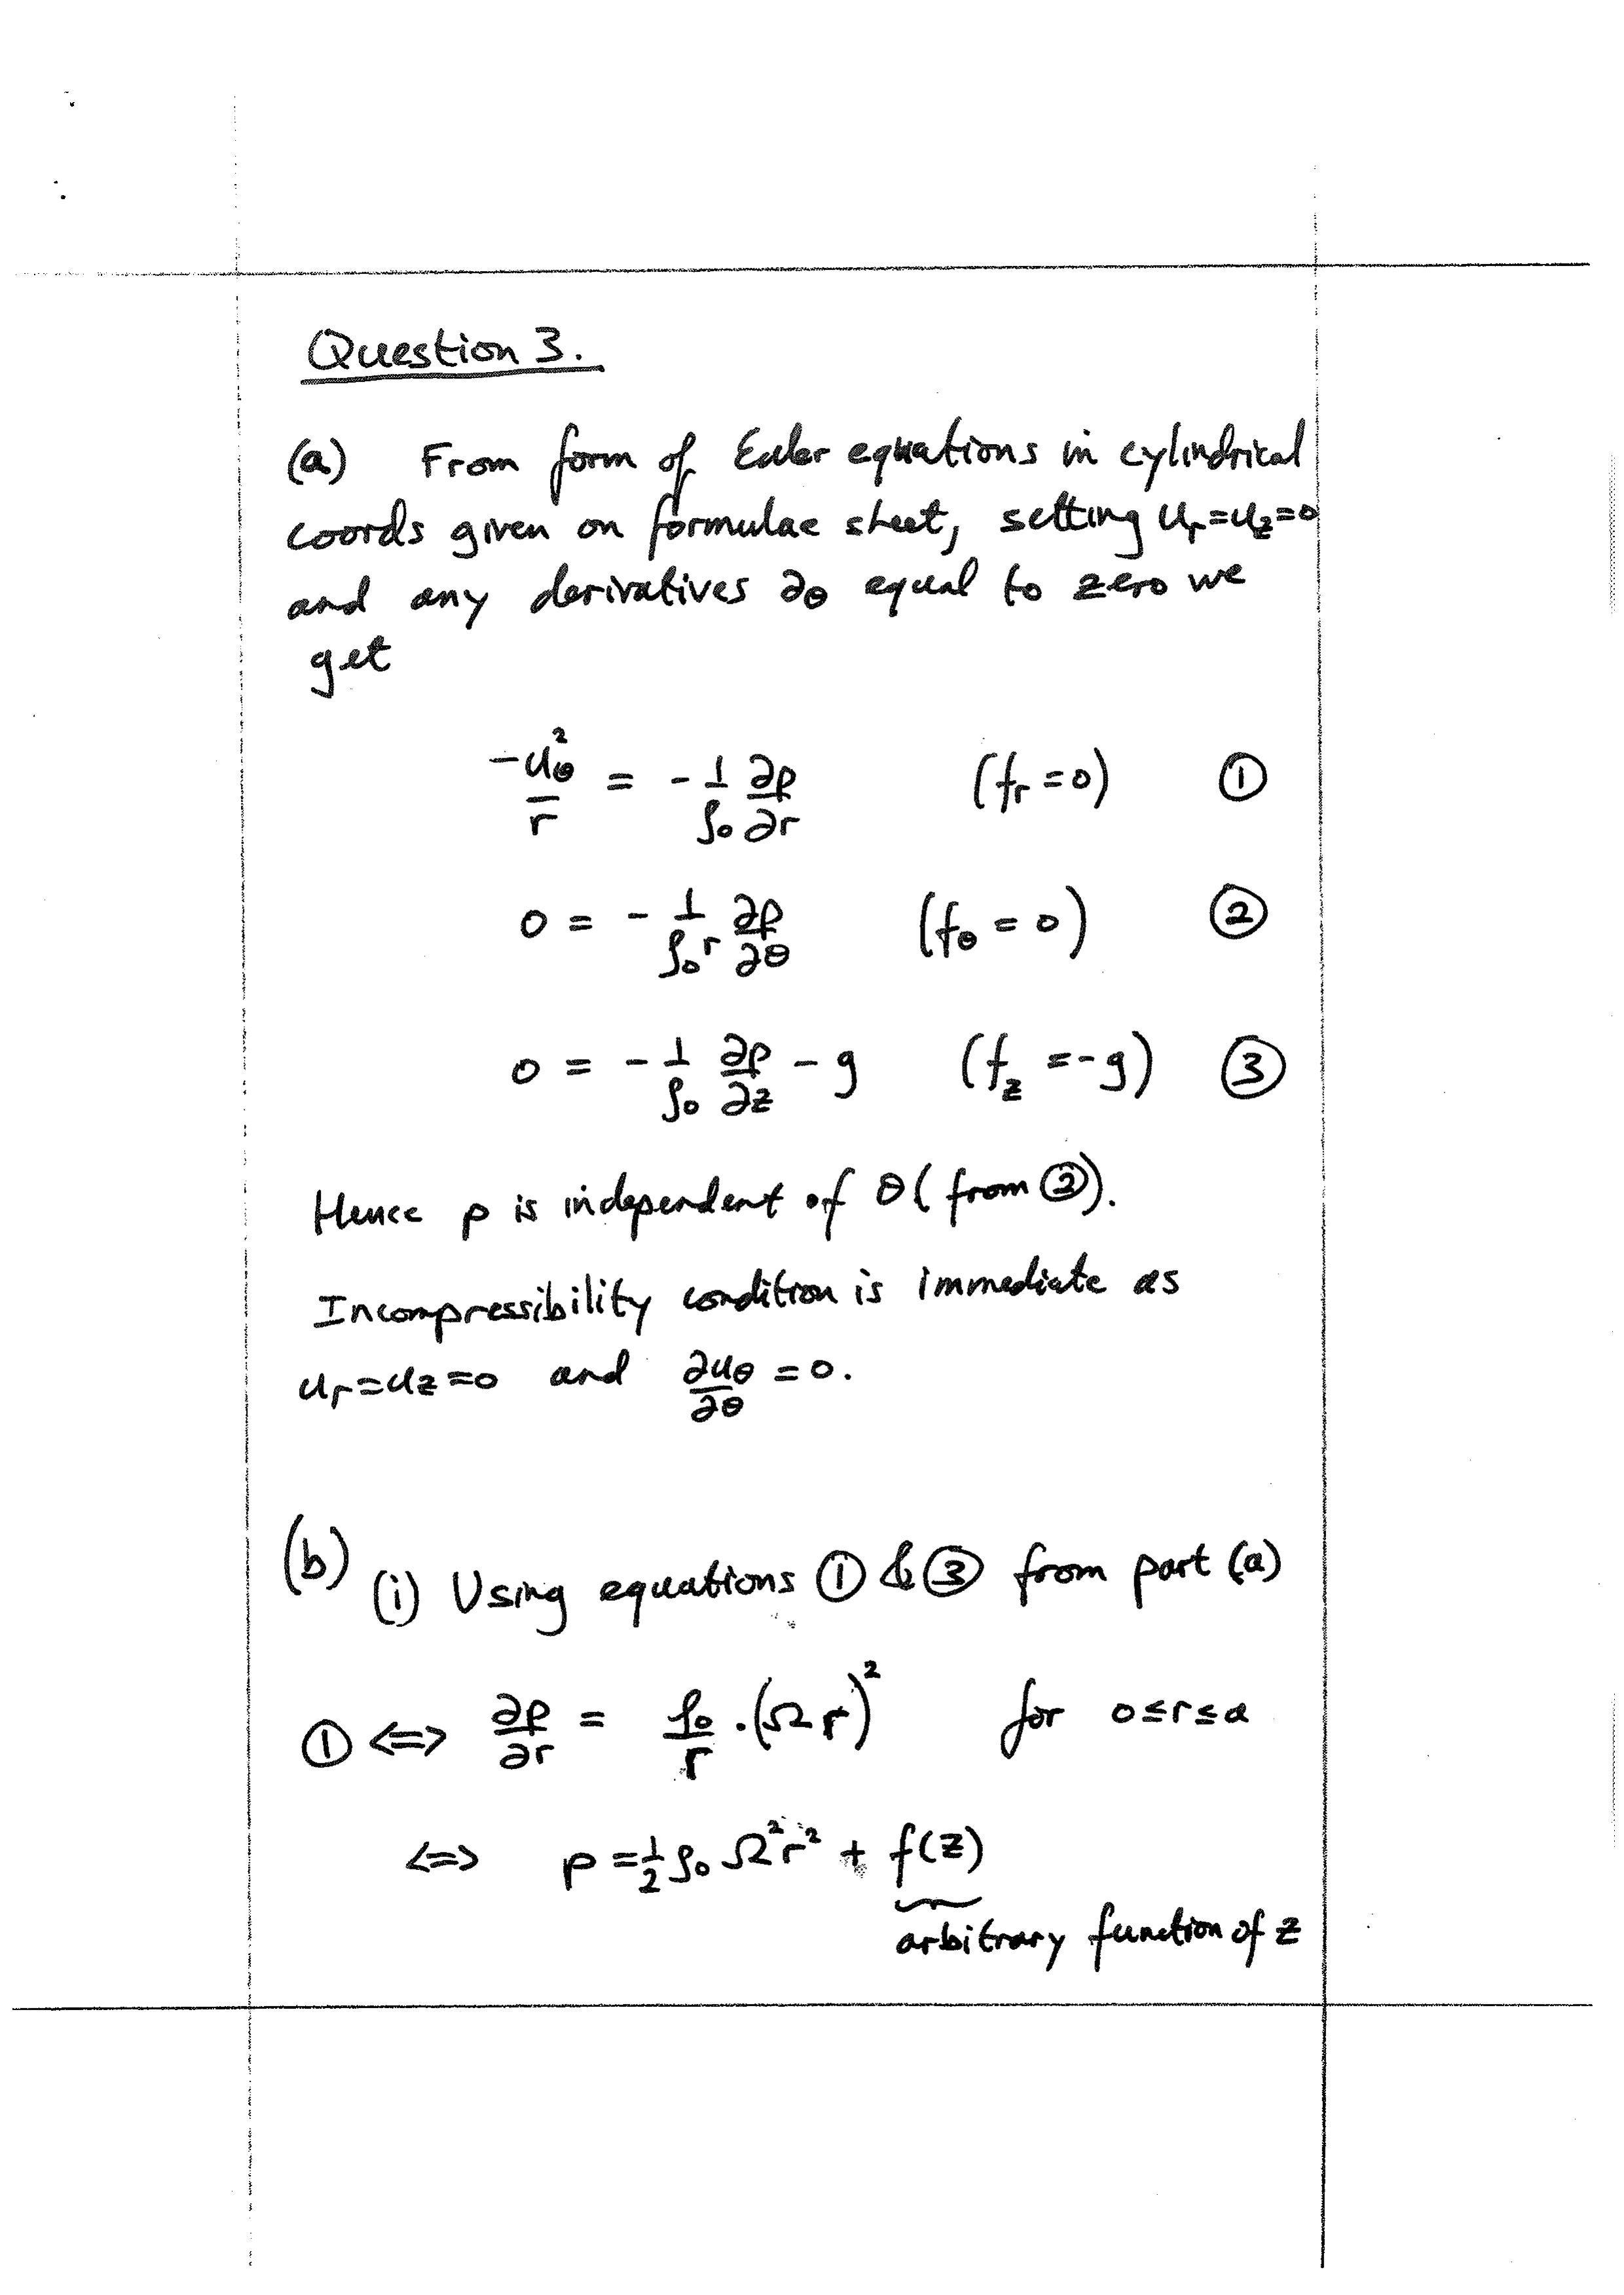 Question 3.
(a) From form of Euler equations in cylindrical
coords given on formulae sheet, setting u_r=u_z=0
and any derivatives ∂_θ equal to zero we
get
-u_θ²/r = -1/ρ₀ ∂p/∂r (f_r=0) ①
0 = -1/(ρ₀r) ∂p/∂θ (f_θ=0) ②
0 = -1/ρ₀ ∂p/∂z - g (f_z=-g) ③
Hence p is independent of θ (from ②).
Incompressibility condition is immediate as
u_r=u_z=0 and ∂u_θ/∂θ =0.
(b) (i) Using equations ① & ③ from part (a)
① <=> ∂p/∂r = ρ₀/r . (Ωr)² for 0≤r≤a
<=> p = 1/2 ρ₀ Ω²r² + f(z)
arbitrary function of z